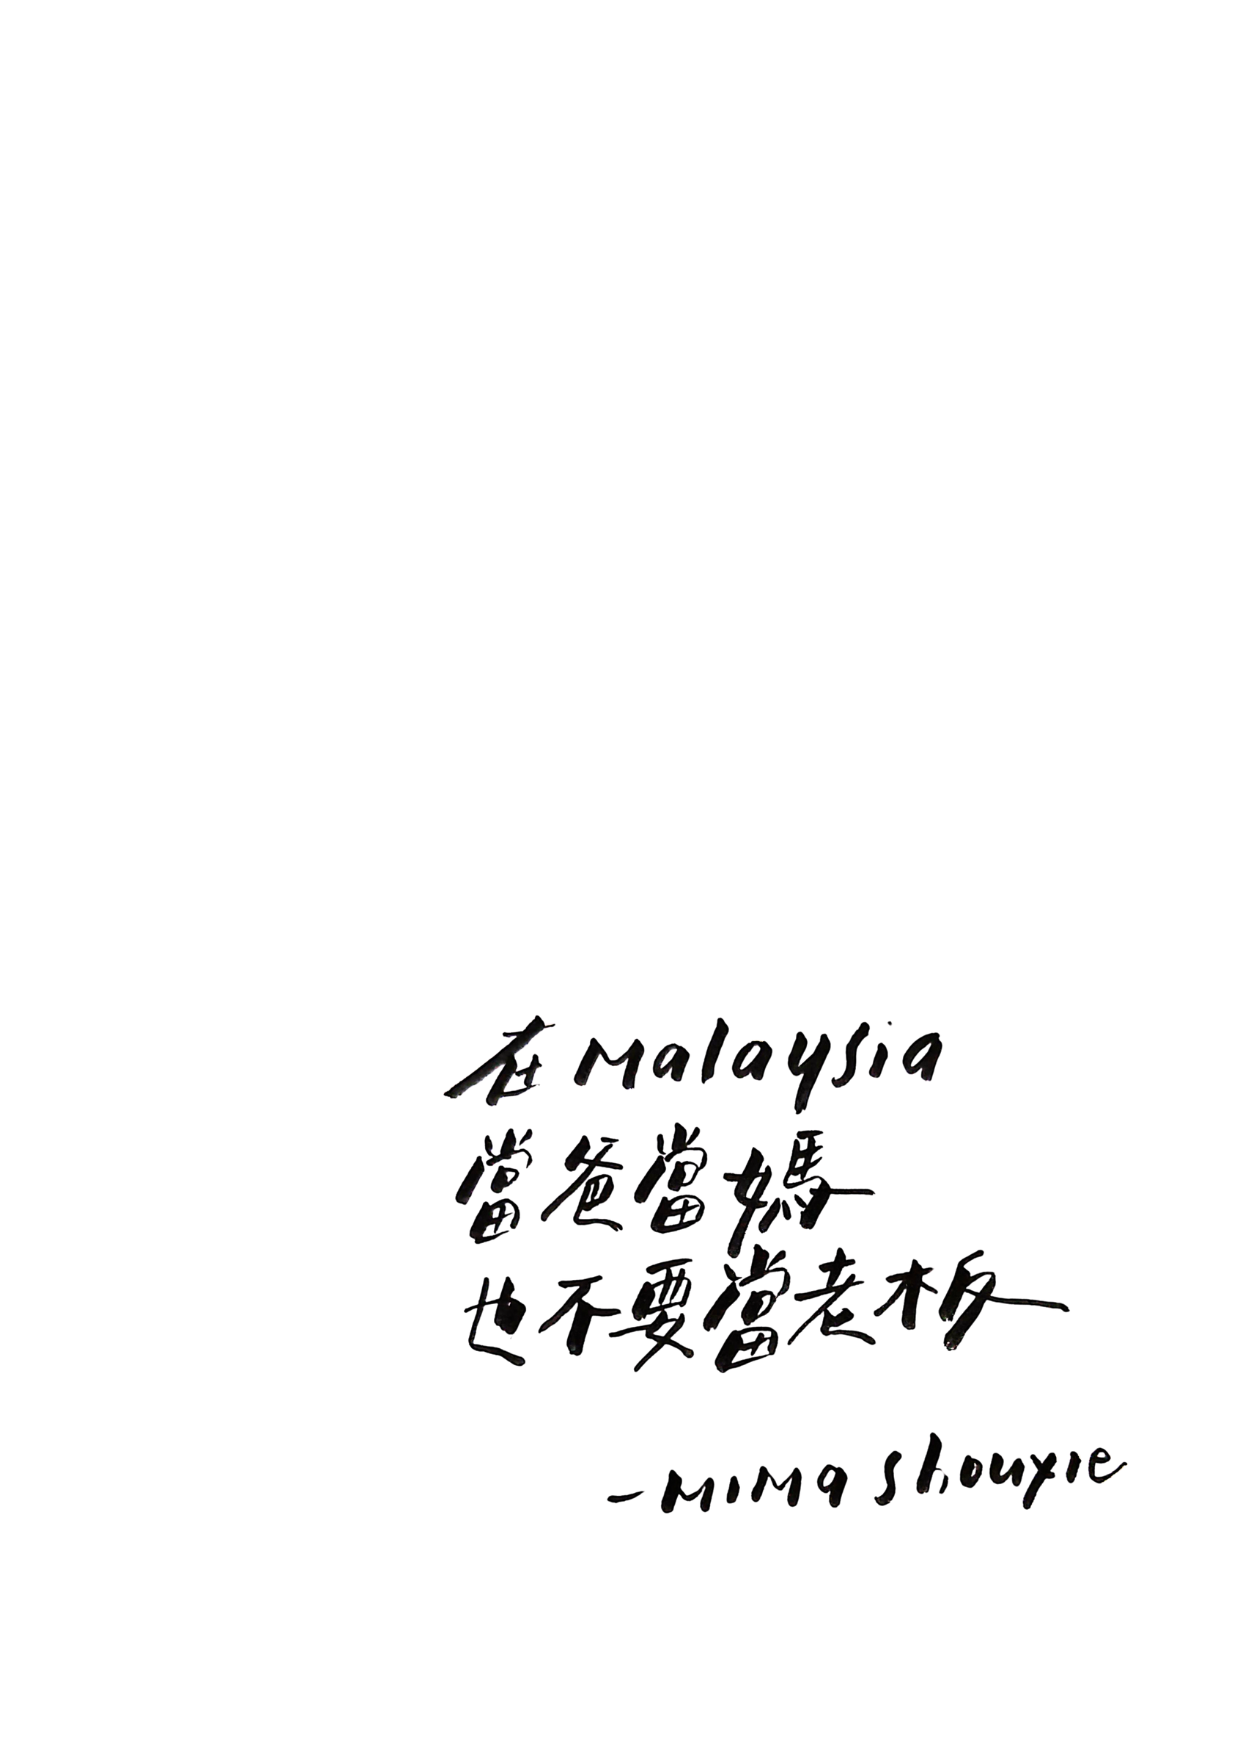 在Malaysia
當爸當媽
也不要當老板
-MIMa Shouxie